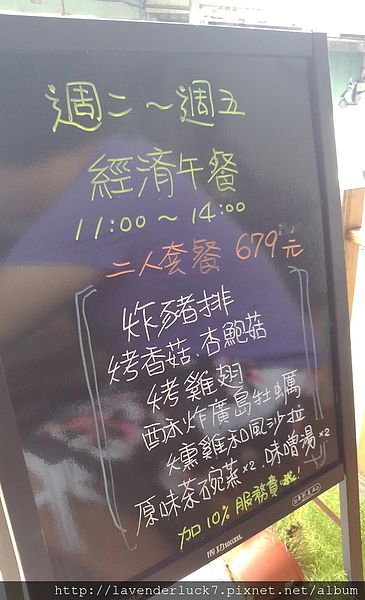 週二～週五
經濟午餐
11:00～14:00
二人套餐 679元
炸豬排
烤香菇、杏鮑菇
烤雞翅
酥炸廣島牡蠣
燻雞和風沙拉
原味茶碗蒸×2、味噌湯×2
加10%服務費
SUCCESS
http://lavenderluck7.pixnet.net/album